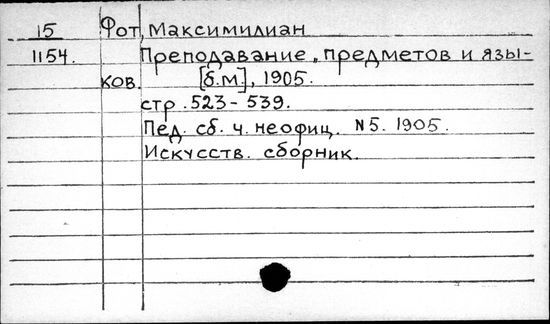 15 Фот, Максимилиан
1154. Преподавание, предметов и язы-
ков. [б.м], 1905.
стр. 523-539.
Пед. сб. ч. неофиц. N5. 1905.
Искусств. сборник.